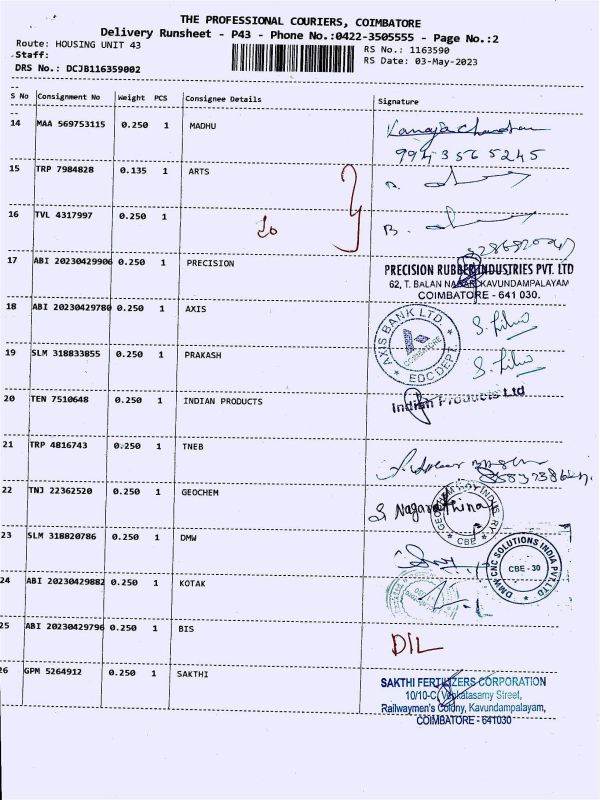 THE PROFESSIONAL COURIERS, COIMBATORE
Delivery Runsheet - P43 - Phone No.:0422-3505555 - Page No.:2
Route: HOUSING UNIT 43
RS No.: 1163590
Staff:
RS Date: 03-May-2023
DRS No.: DCJB116359002
S No Consignment No Weight PCS Consignee Details Signature
14 MAA 569753115 0.250 1 MADHU
99435 65245
15 TRP 7984828 0.135 1 ARTS
16 TVL 4317997 0.250 1
17 ABI 20230429906 0.250 1 PRECISION
PRECISION RUBBER INDUSTRIES PVT. LTD
62, T. BALAN NAGAR, KAVUNDAMPALAYAM
COIMBATORE - 641 030.
18 ABI 20230429780 0.250 1 AXIS
AXIS BANK LTD.
COIMBATORE
EDC DEPT.
19 SLM 318833855 0.250 1 PRAKASH
20 TEN 7510648 0.250 1 INDIAN PRODUCTS
Indian Products Ltd
21 TRP 4816743 0.250 1 TNEB
22 TNJ 22362520 0.250 1 GEOCHEM
S. Nagarathinam
CBE
23 SLM 318820786 0.250 1 DMW
DMW CNC SOLUTIONS INDIA PVT. LTD
CBE - 30
24 ABI 20230429882 0.250 1 KOTAK
25 ABI 20230429796 0.250 1 BIS
DIL
26 GPM 5264912 0.250 1 SAKTHI
SAKTHI FERTILIZERS CORPORATION
10/10-C, Venkatasamy Street,
Railwaymen's Colony, Kavundampalayam,
COIMBATORE - 641030